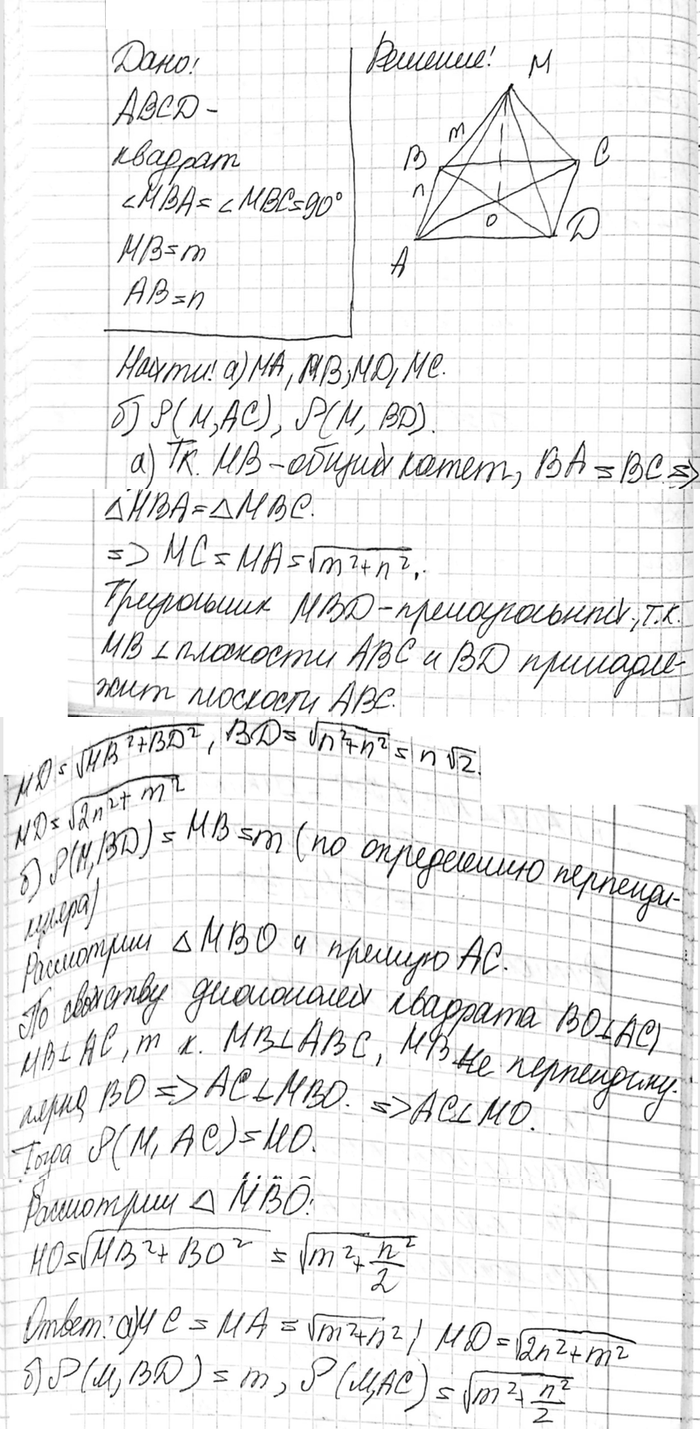 Дано!
ABCD-
квадрат
∠MBA=∠MBC=90°
MB=m
AB=n
Решение!
M
m
B
C
n
O
A
D
Найти! а) MA, MB, MD, MC.
б) ρ(M,AC), ρ(M, BD).
а) Т.к. MB-общий катет, BA=BC=>
△MBA=△MBC.
=> MC=MA=√(m²+n²).
Треугольник MBD-прямоугольный, т.к.
MB⊥плоскости ABC и BD принадле-
жит плоскости ABC.
MD=√(MB²+BD²), BD=√(n²+n²)=n√2.
MD=√(2n²+m²)
б) ρ(M,BD)=MB=m (по определению перпенди-
куляра)
Рассмотрим △MBO и прямую AC.
По свойству диагоналей квадрата BO⊥AC,
MB⊥AC, т к. MB⊥ABC, MB не перпендику-
лярна BO => AC⊥MBO. => AC⊥MO.
Тогда ρ(M, AC)=MO.
Рассмотрим △MBO:
MO=√(MB²+BO²)=√(m²+n²/2)
Ответ! а) MC=MA=√(m²+n²); MD=√(2n²+m²)
б) ρ(M,BD)=m, ρ(M,AC)=√(m²+n²/2)